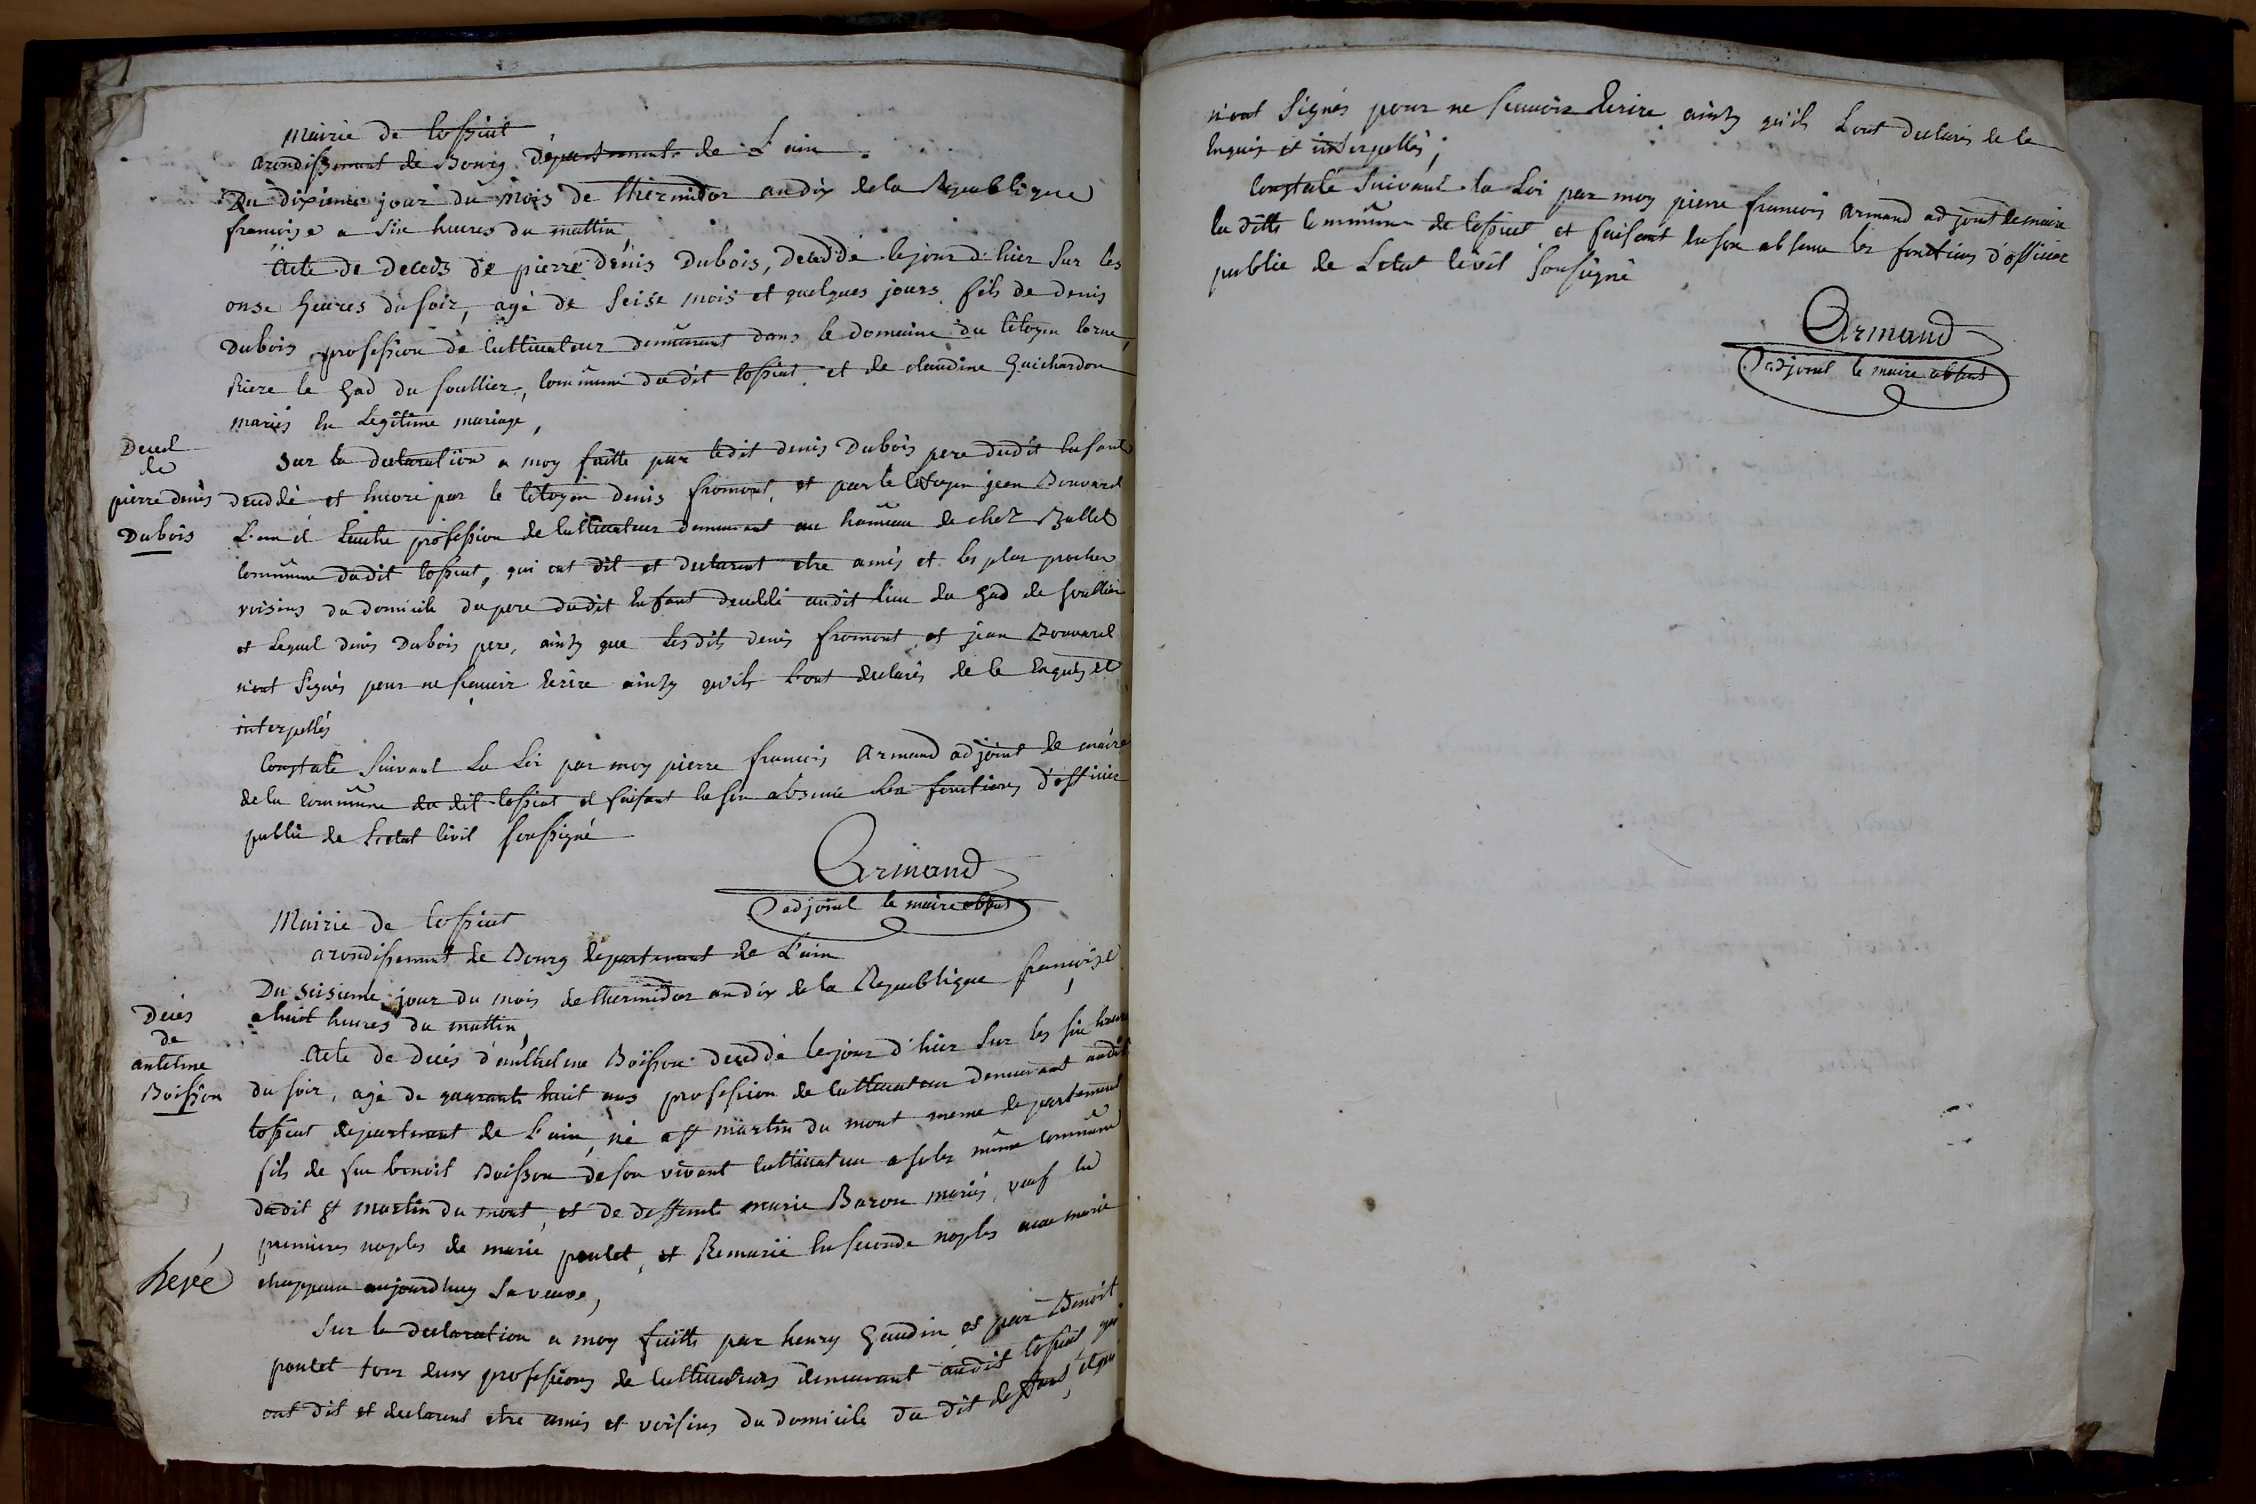 Mairie de Cossiat
arondissement de Bourg département de L'ain
Du dixieme jour du mois de thermidor an dix de la Republique
francoise a six heures du mattin
Acte de deceds de pierre denis Dubois, decedé le jour d'hier sur les
onse heures du soir, agé de seise mois et quelques jours fils de denis
Dubois profession de Cultivateur demeurant dans le domaine du Citoyen
Riere le Gad du soullier, Commune dudit Cossiat et de claudine Guichardon
mariés en Legitime mariage,
Deced
de
pierre denis
Dubois
sur la declaration a moy faitte par ledit denis Dubois pere dudit enfant
decedé et encore par le Citoyen denis fromont, et par le Citoyen jean Bouvard
L'un et Lautre profession de Cultivateur demeurant au hameau de chez Ballet
Commune dudit Cossiat, qui ont dit et declarent etre amis et les plus proches
voisins du domicile du pere dudit enfant decedé audit lieu du Gad de soullier
et Lequel denis Dubois pere, ainsy que Lesdits denis fromont et jean Bouvard
n'ont signés pour ne scavoir Ecrire ainsy qu'ils L'ont declarés de ce Enquis et
interpellés
Constaté suivant La Loi par moy pierre francois Armand adjoint de maire
de la Commune du dit Cossiat et faisant en son absence Les fonctions d'officier
public de L'etat Civil soussigné
Armand
adjoint le maire absent
Mairie de Cossiat
arondissement de Bourg departement de L'ain
Du seisieme jour du mois de thermidor an dix de la Republique françoise
a huit heures du mattin,
Décés
de
antelme
Boisson
Acte de decés d'anthelme Boisson decedé le jour d'hier sur les six heures
du soir, agé de quarante huit ans profession de Cultivateur demeurant audit
Cossiat departement de L'ain, né a st martin du mont meme departement
fils de feu benoit Boisson de son vivant Cultivateur a soler même commune
dudit st martin du mont, et de deffunte marie Baron mariés, veuf en
premieres nopces de marie poulet, et Remarié En seconde nopces avec marie
chappeau aujourdhuy sa veuve,
Sur la declaration a moy faitte par henry Gaudin et par Benoit
poulet tous deux professions de Cultivateurs demeurant audit Cossiat, qui
ont dit et declarent etre amis et voisins du domicile du dit deffunt, et qui
n'ont signés pour ne scavoir Ecrire ainsy qu'ils L'ont declarés de ce
Enquis et interpellés;
Constaté suivant la Loi par moy pierre francois Armand adjoint de maire
la ditte Commune de Cossiat et faisant en son absence les fonctions d'officier
public de L'etat Civil soussigné
Armand
adjoint le maire absent